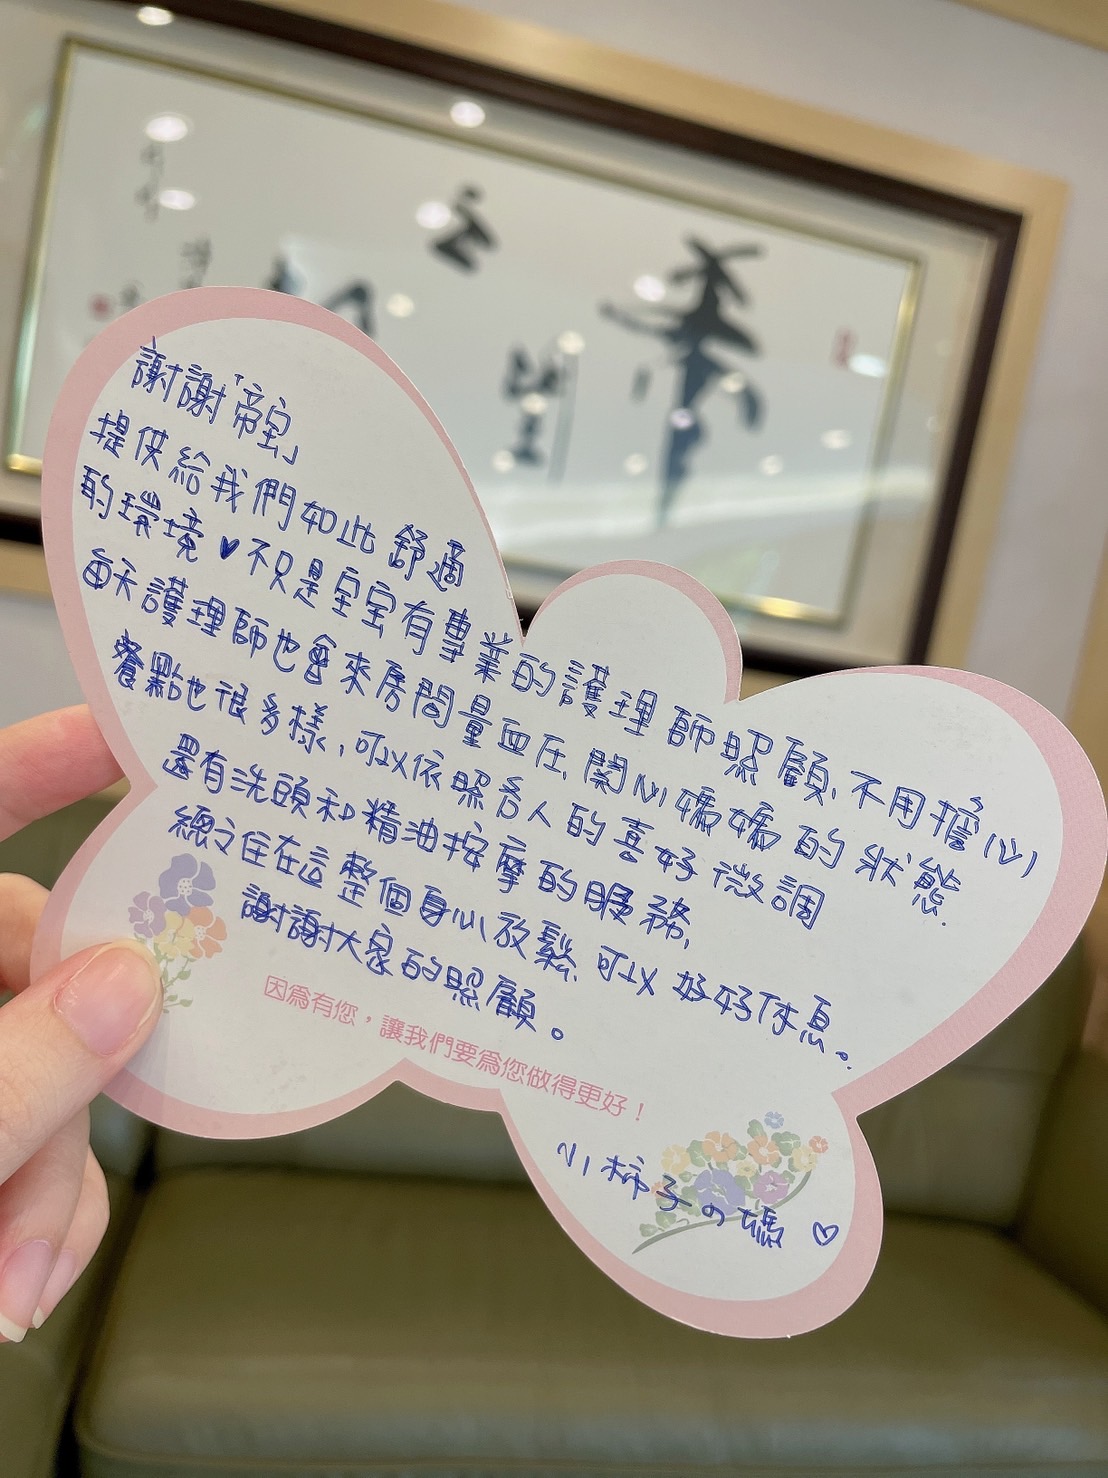 謝謝「帝宝」
提供給我們如此舒適
的環境♥不只是宝宝有專業的護理師照顧、不用擔心
每天護理師也會來房間量血圧、関心媽媽的狀態
餐點也很多樣，可以依照各人的喜好微調
還有洗頭和精油按摩的服務，
總之住在這整個身心放鬆，可以好好休息。
謝謝大家的照顧。
因為有您，讓我們要為您做得更好！
小柿子の媽♡
之